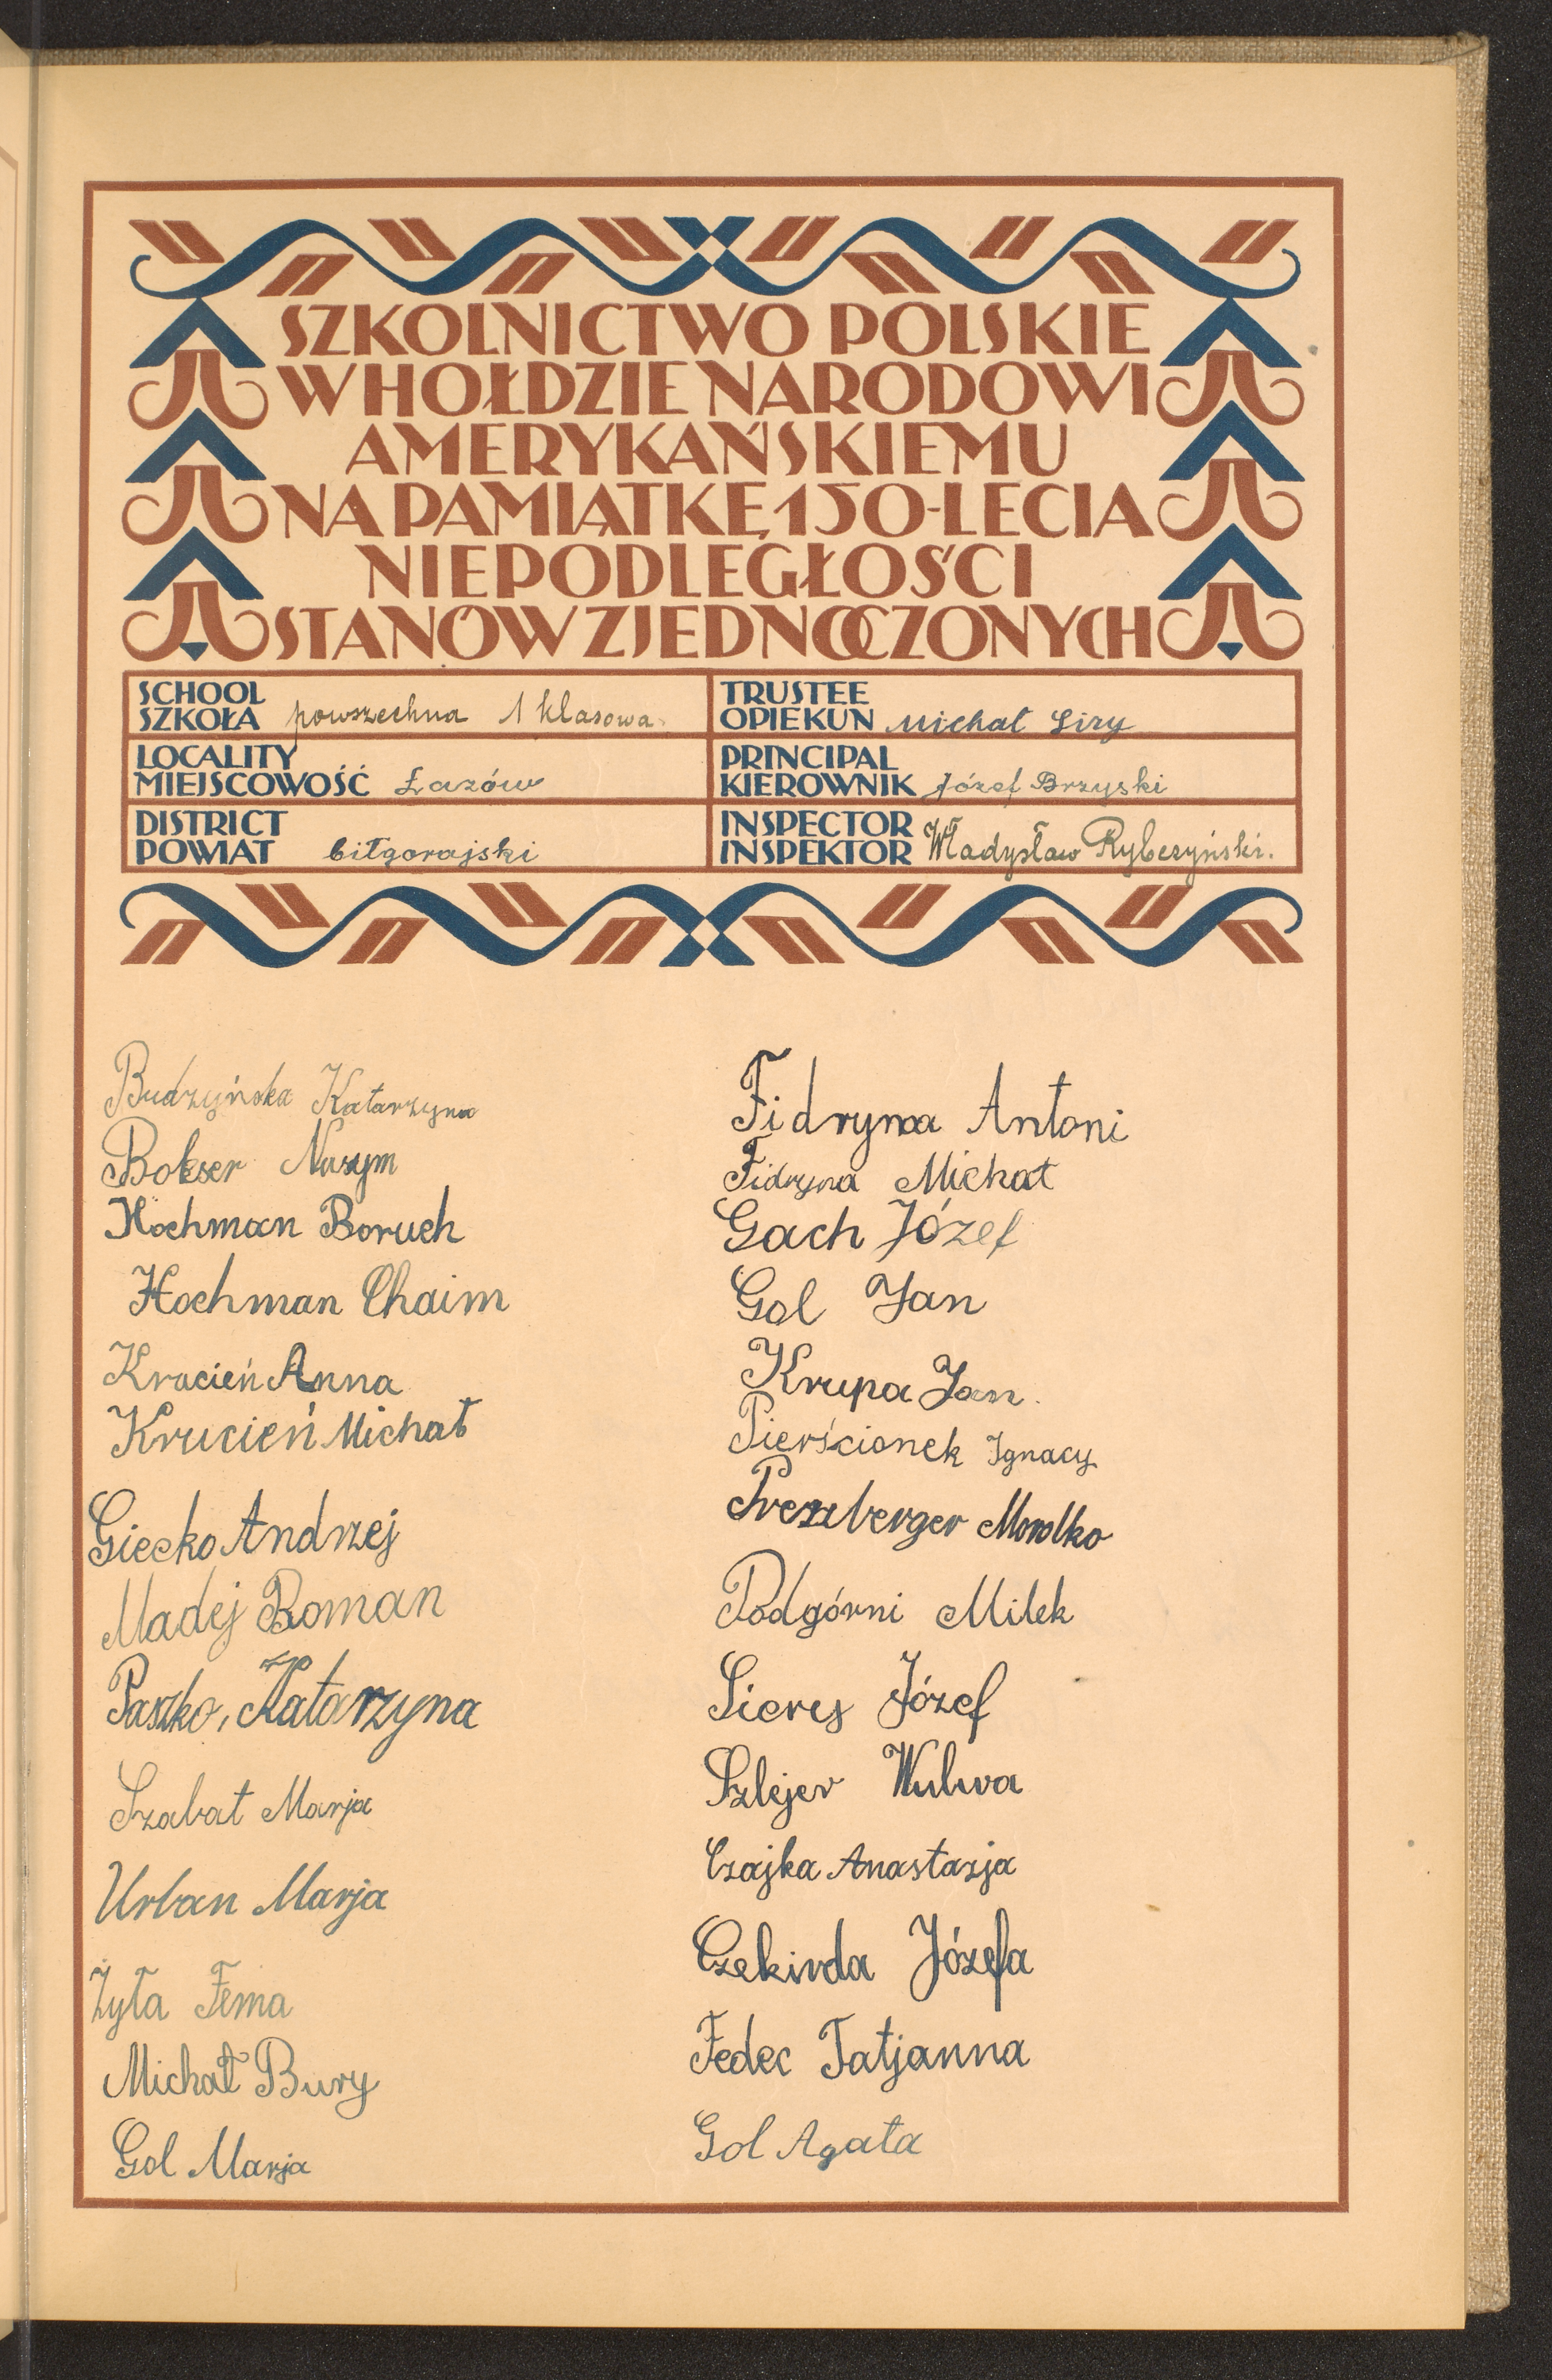 SZKOLNICTWO POLSKIE
W HOŁDZIE NARODOWI
AMERYKAŃSKIEMU
NA PAMIĄTKĘ 150-LECIA
NIEPODLEGŁOŚCI
STANÓW ZJEDNOCZONYCH
SCHOOL
SZKOŁA powszechna 1 klasowa
TRUSTEE
OPIEKUN Michał Siry
LOCALITY
MIEJSCOWOŚĆ Łazów
PRINCIPAL
KIEROWNIK Józef Brzyski
DISTRICT
POWIAT biłgorajski
INSPECTOR
INSPEKTOR Władysław Rybczyński.
Budzyńska Katarzyna
Bokser Nusym
Hochman Boruch
Hochman Chaim
Krucień Anna
Krucień Michał
Giecko Andrzej
Madej Roman
Paszko, Katarzyna
Szabat Marja
Urban Marja
Żyła Fema
Michał Bury
Gol Marja
Fidryna Antoni
Fidryna Michał
Gach Józef
Gol Jan
Krupa Jan.
Pierścionek Ignacy
Preszberger
Podgórni Milek
Sierys Józef
Szlejer Wulwa
Czajka Anastazja
Czekirda Józefa
Fedec Tatjanna
Gol Agata